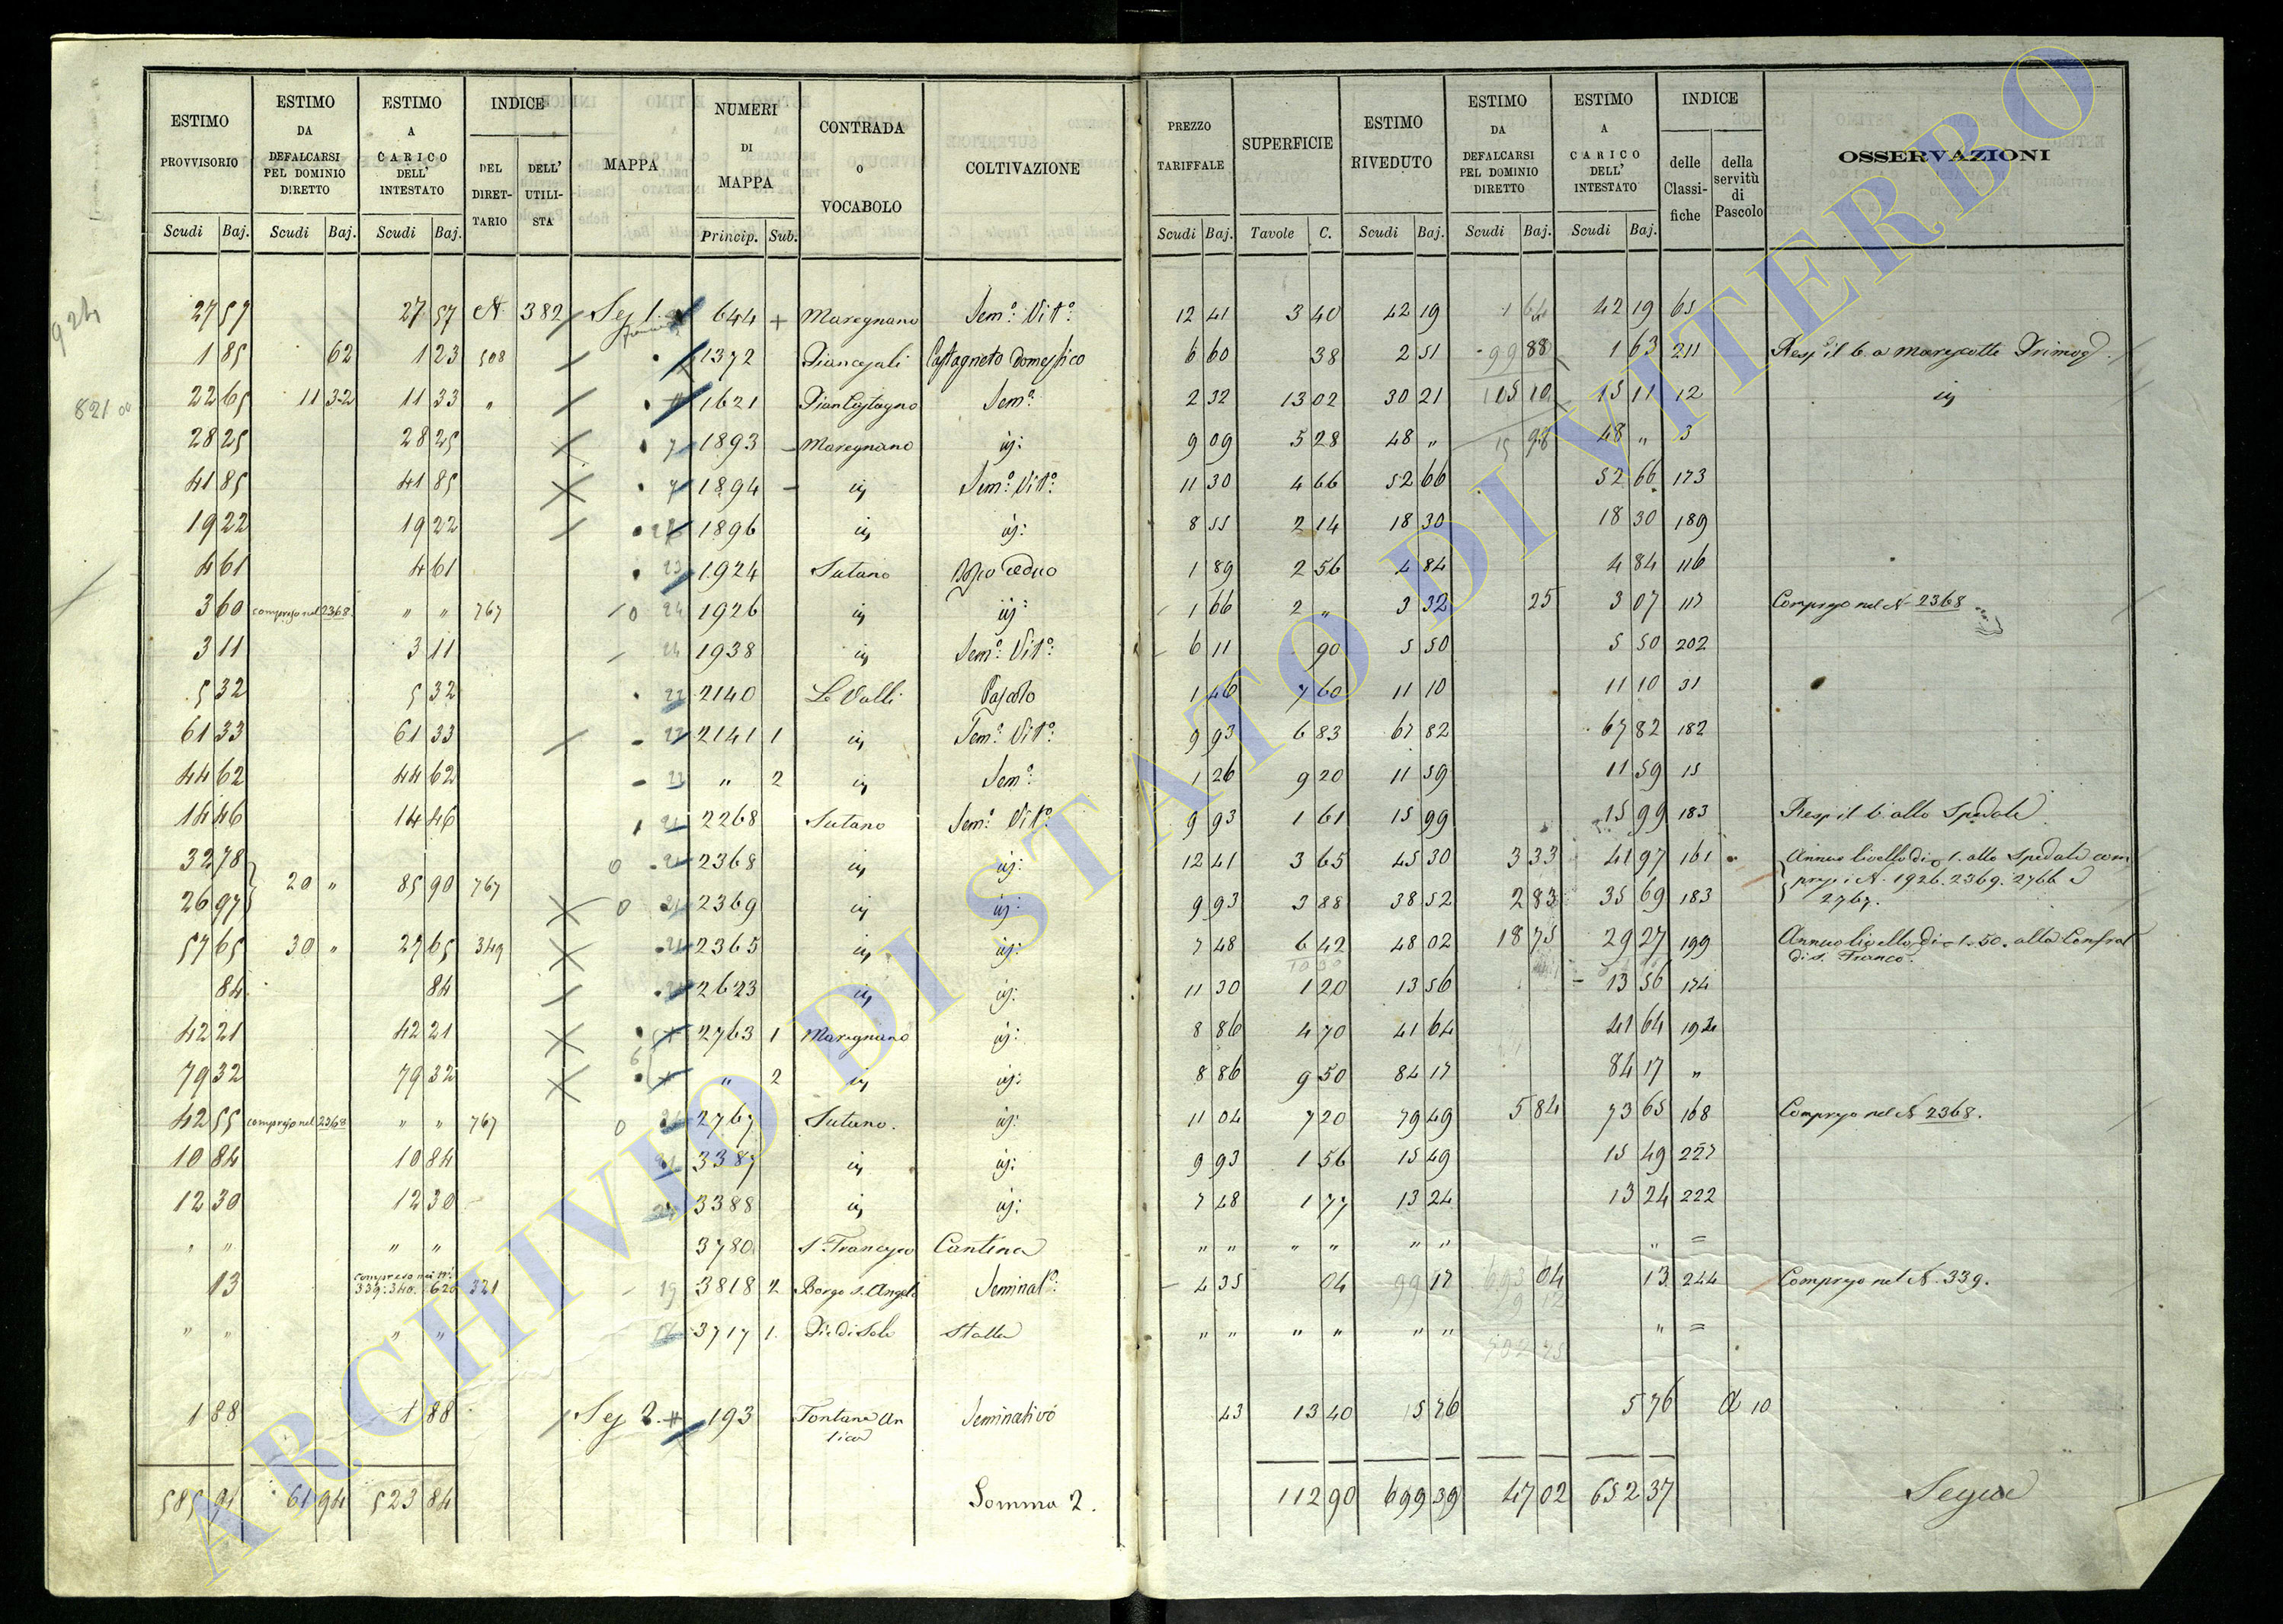 ESTIMO PROVVISORIO
ESTIMO DA DEFALCARSI PEL DOMINIO DIRETTO
ESTIMO A CARICO DELL' INTESTATO
INDICE
DEL DIRETTARIO
DELL' UTILISTA
MAPPA
NUMERI DI MAPPA
CONTRADA O VOCABOLO
COLTIVAZIONE
PREZZO TARIFFALE
SUPERFICIE
ESTIMO RIVEDUTO
ESTIMO DA DEFALCARSI PEL DOMINIO DIRETTO
ESTIMO A CARICO DELL' INTESTATO
INDICE
delle Classifiche
della servitù di Pascolo
OSSERVAZIONI
Scudi Baj. Scudi Baj. Scudi Baj. Princip. Sub. Scudi Baj. Tavole C. Scudi Baj. Scudi Baj. Scudi Baj.
924
821 00
27 57 27 57 N. 382 Sez 1. 644 + Maregnano Sem.o Vit.o 12 41 3 40 42 19 42 19 65
1 85 62 1 23 508 1372 Castagneto Domestico 6 60 38 2 51 88 1 63 211
22 65 11 32 11 33 " 1621 Pian Castagno Sem.o 2 32 13 02 30 21 15 10 15 11 12
28 25 28 25 7 1893 Maregnano 9 09 5 28 48 " 48 " 3
41 85 41 85 7 1894 Sem.o Vit.o 11 30 4 66 52 66 52 66 173
19 22 19 22 1896 8 55 2 14 18 30 18 30 189
4 61 4 61 23 1924 Sutano Ceduo 1 89 2 56 4 84 4 84 116
3 60 compreso nel 2368 " " 767 0 24 1926 1 66 2 " 3 32 25 3 07 117 Compreso nel N. 2368
3 11 3 11 24 1938 Sem.o Vit.o 6 11 90 5 50 5 50 202
5 32 5 32 22 2140 Le Valli Pascolo 1 46 7 60 11 10 11 10 31
61 33 61 33 22 2141 1 Sem.o Vit.o 9 93 6 83 67 82 67 82 182
44 62 44 62 22 " 2 Sem.o 1 26 9 20 11 59 11 59 15
14 46 14 46 21 2268 Sutano Sem.o Vit.o 9 93 1 61 15 99 15 99 183 allo Spedale
32 78 0 21 2368 12 41 3 65 45 30 3 33 41 97 161 Annuo livello di allo Spedale com
20 " 85 90 767
26 97 0 21 2369 9 93 3 88 38 52 2 83 35 69 183 1926. 2369. 2766 2767.
57 65 30 " 27 65 349 21 2365 7 48 6 42 48 02 18 75 29 27 199 Annuo livello di 1.50. alla Confrat
di S. Franco.
84 84 2623 11 30 1 20 13 56 13 56 174
42 21 42 21 2763 1 Maregnano 8 86 4 70 41 64 41 64 192
79 32 79 32 " 2 8 86 9 50 84 17 84 17 "
42 55 compreso nel 2368 " " 767 0 21 2767 Sutano. 11 04 7 20 79 49 5 84 73 65 168 Compreso nel N. 2368.
10 84 10 84 21 3387 9 93 1 56 15 49 15 49 227
12 30 12 30 3388 7 48 1 77 13 24 13 24 222
" " " " 3780 S. Francesco Cantina " " " " " " " =
13 compreso nei N. 339. 340. 620 321 19 3818 2 Borgo S. Angelo Seminat.o 4 35 04 17 13 244 Compreso nel N. 339.
" " " " 3717 1. Piè di Sole Stalla " " " " " " " =
1 88 1 88 Sez 2. 193 Fontana An
tica Seminativo 43 13 40 5 76 5 76 a 10
585 91 61 94 523 84 Somma 2. 112 90 699 39 47 02 652 37 Segue
ARCHIVIO DI STATO DI VITERBO